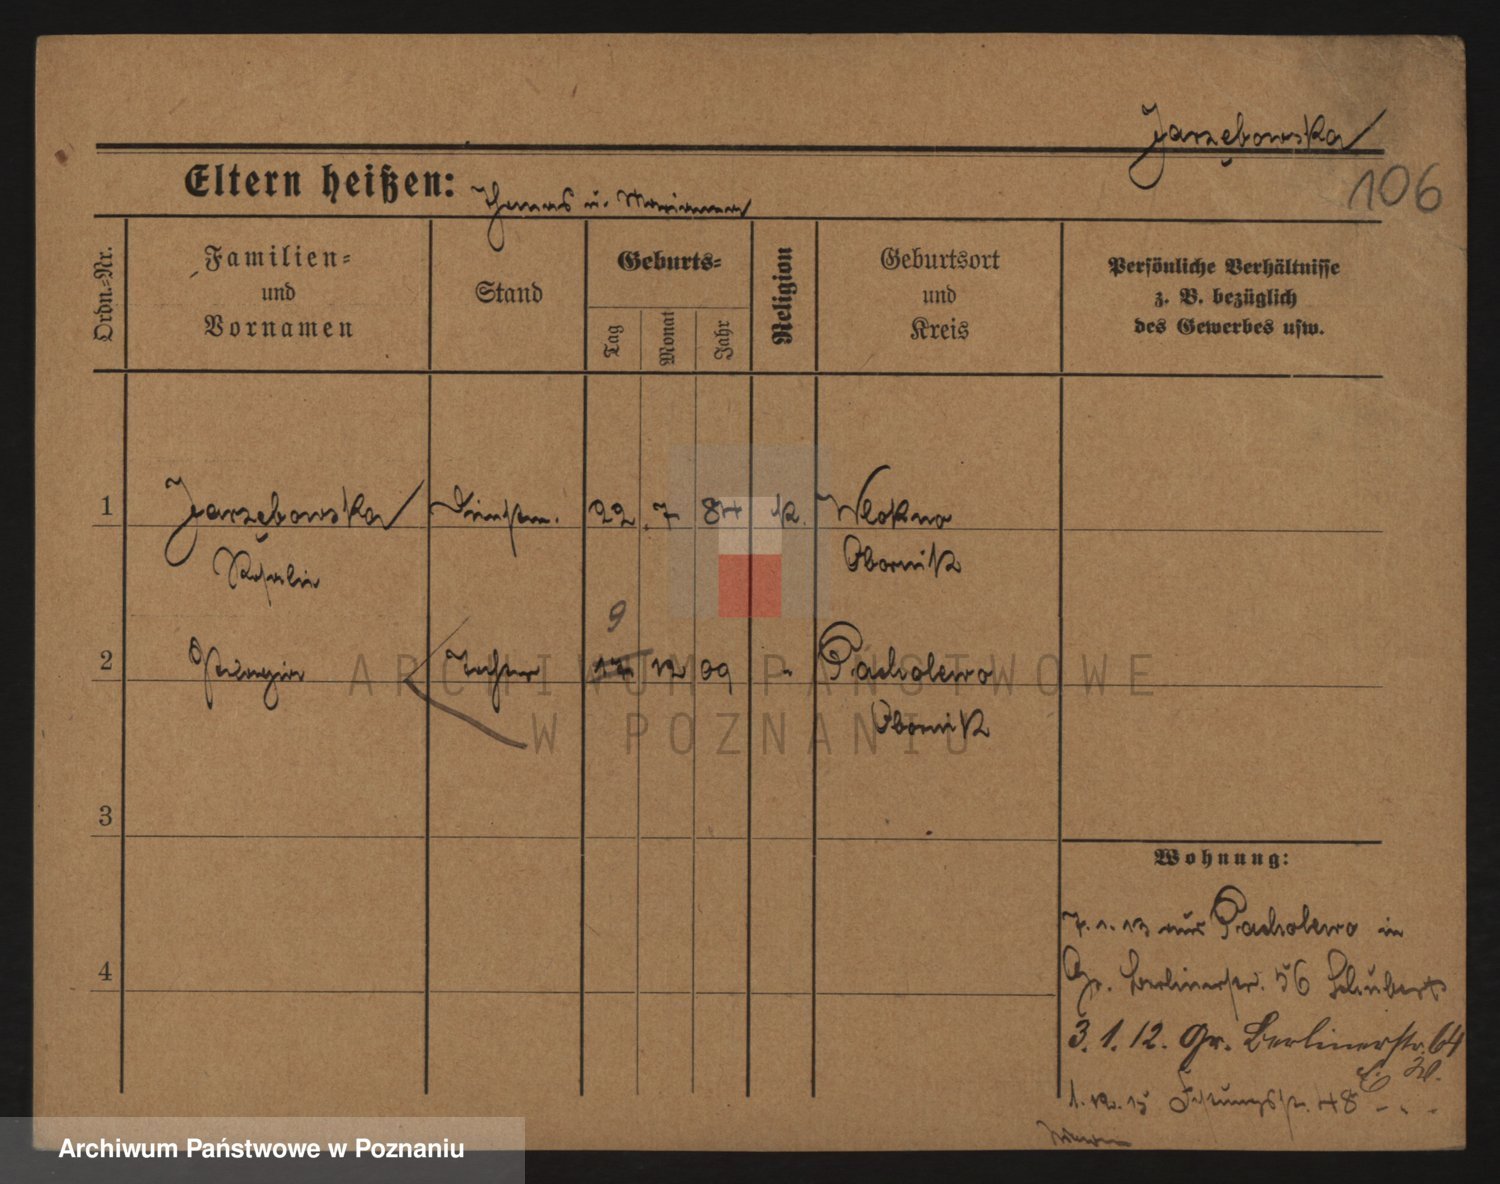 Jarzębowska
106
Eltern heißen: Thomas u. Marianna
Ordn.-Nr.
Familien-
und
Vornamen
Stand
Geburts-
Tag
Monat
Jahr
Religion
Geburtsort
und
Kreis
Persönliche Verhältnisse
z. B. bezüglich
des Gewerbes usw.
1 Jarzębowska 22. 7 84 k. Wlokno
Rosalie Obornik
9
2 Pelagia Tochter 17 12 09 " Pacholewo
Obornik
3
4
Wohnung:
7. 1. 13 aus Pacholewo in
Gr. Berlinerstr. 56 Schubert
3. 1. 12. Gr. Berlinerstr. 64
1. 12. 15 48
ARCHIWUM PAŃSTWOWE
W POZNANIU
Archiwum Państwowe w Poznaniu